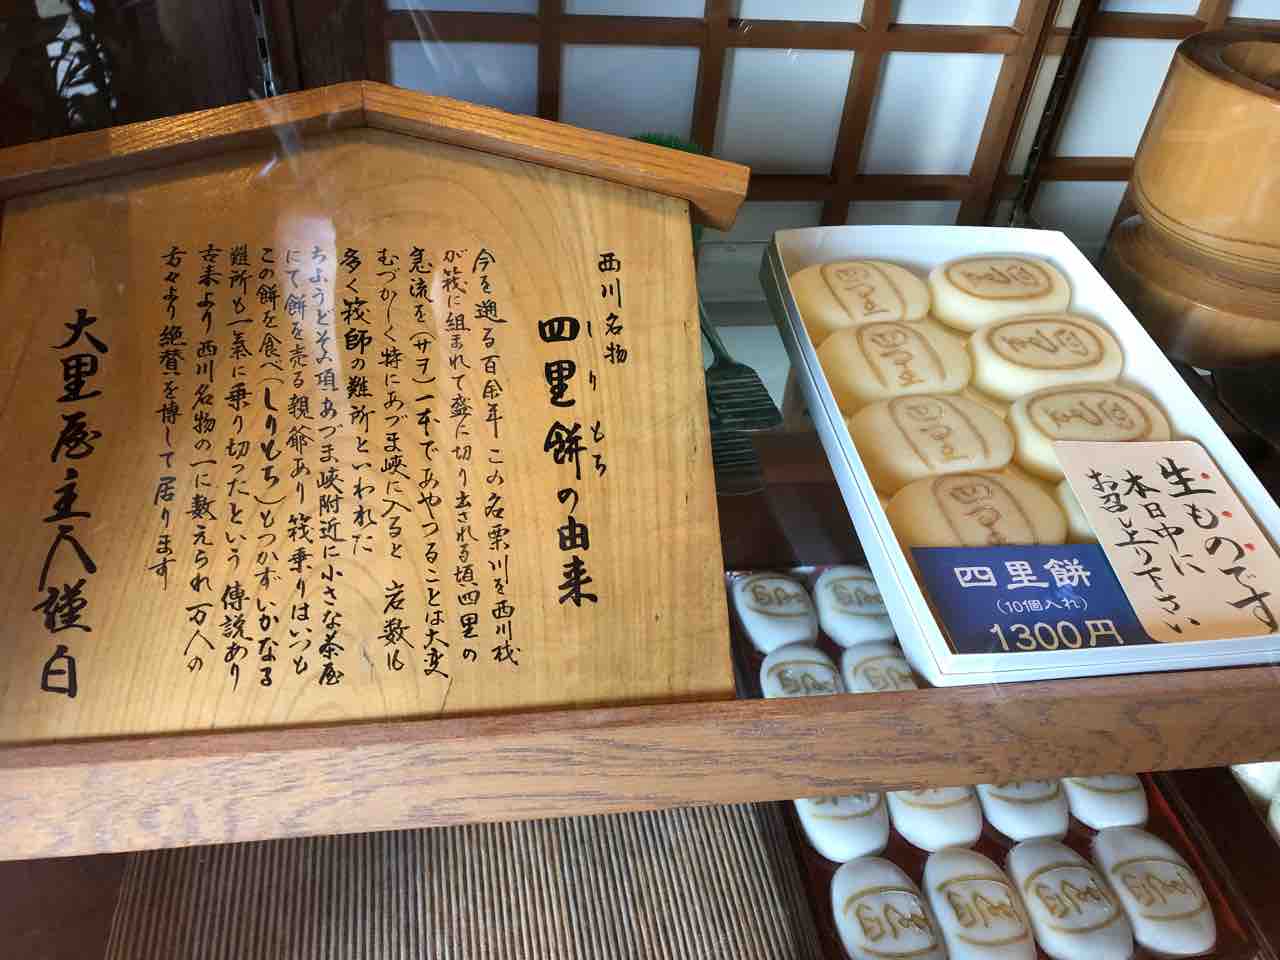 西川名物
しりもち
四里餅の由来
今を遡る百余年 この名栗川を西川材
が筏に組まれて盛に切り出される頃四里の
急流を(サヲ)一本であやつることは大変
むづかしく特にあづま峡に入ると 岩数も
多く筏師の難所といわれた
ちようどその頃あづま峡附近に小さな茶屋
にて餅を売る親爺あり 筏乗りはいつも
この餅を食べ(しりもち)もつかずいかなる
難所も一気に乗り切ったという 傳説あり
古来より西川名物の一に数えられ 万人の
方々より絶賛を博して居ります
大里屋主人謹白
四里餅
(10個入れ)
1300円
生ものです
本日中に
お召し上り下さい
四里
四里
四里
四里